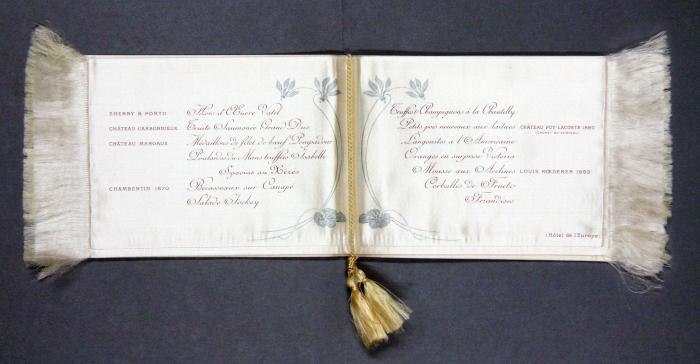 SHERRY & PORTO Hors-d'Œuvre Vatel
CHÂTEAU CARBONNIEUX Truite Saumonée Grand Duc
CHÂTEAU MARGAUX Médaillons de filet de bœuf Pompadour
Poulardes du Mans truffées Isabelle
Spooms au Xérès
CHAMBERTIN 1870 Becasseaux sur Canapé
Salade Jockey
Truffes & Champignons à la Chantilly
Petits pois nouveaux aux laitues CHÂTEAU PUY-LACOSTE 1880
Langoustes à l'Américaine
Oranges en surprise Victoria
Mousse aux Avelines LOUIS RŒDERER 1893
Corbeilles de Fruits
Friandises
(Hôtel de l'Europe)